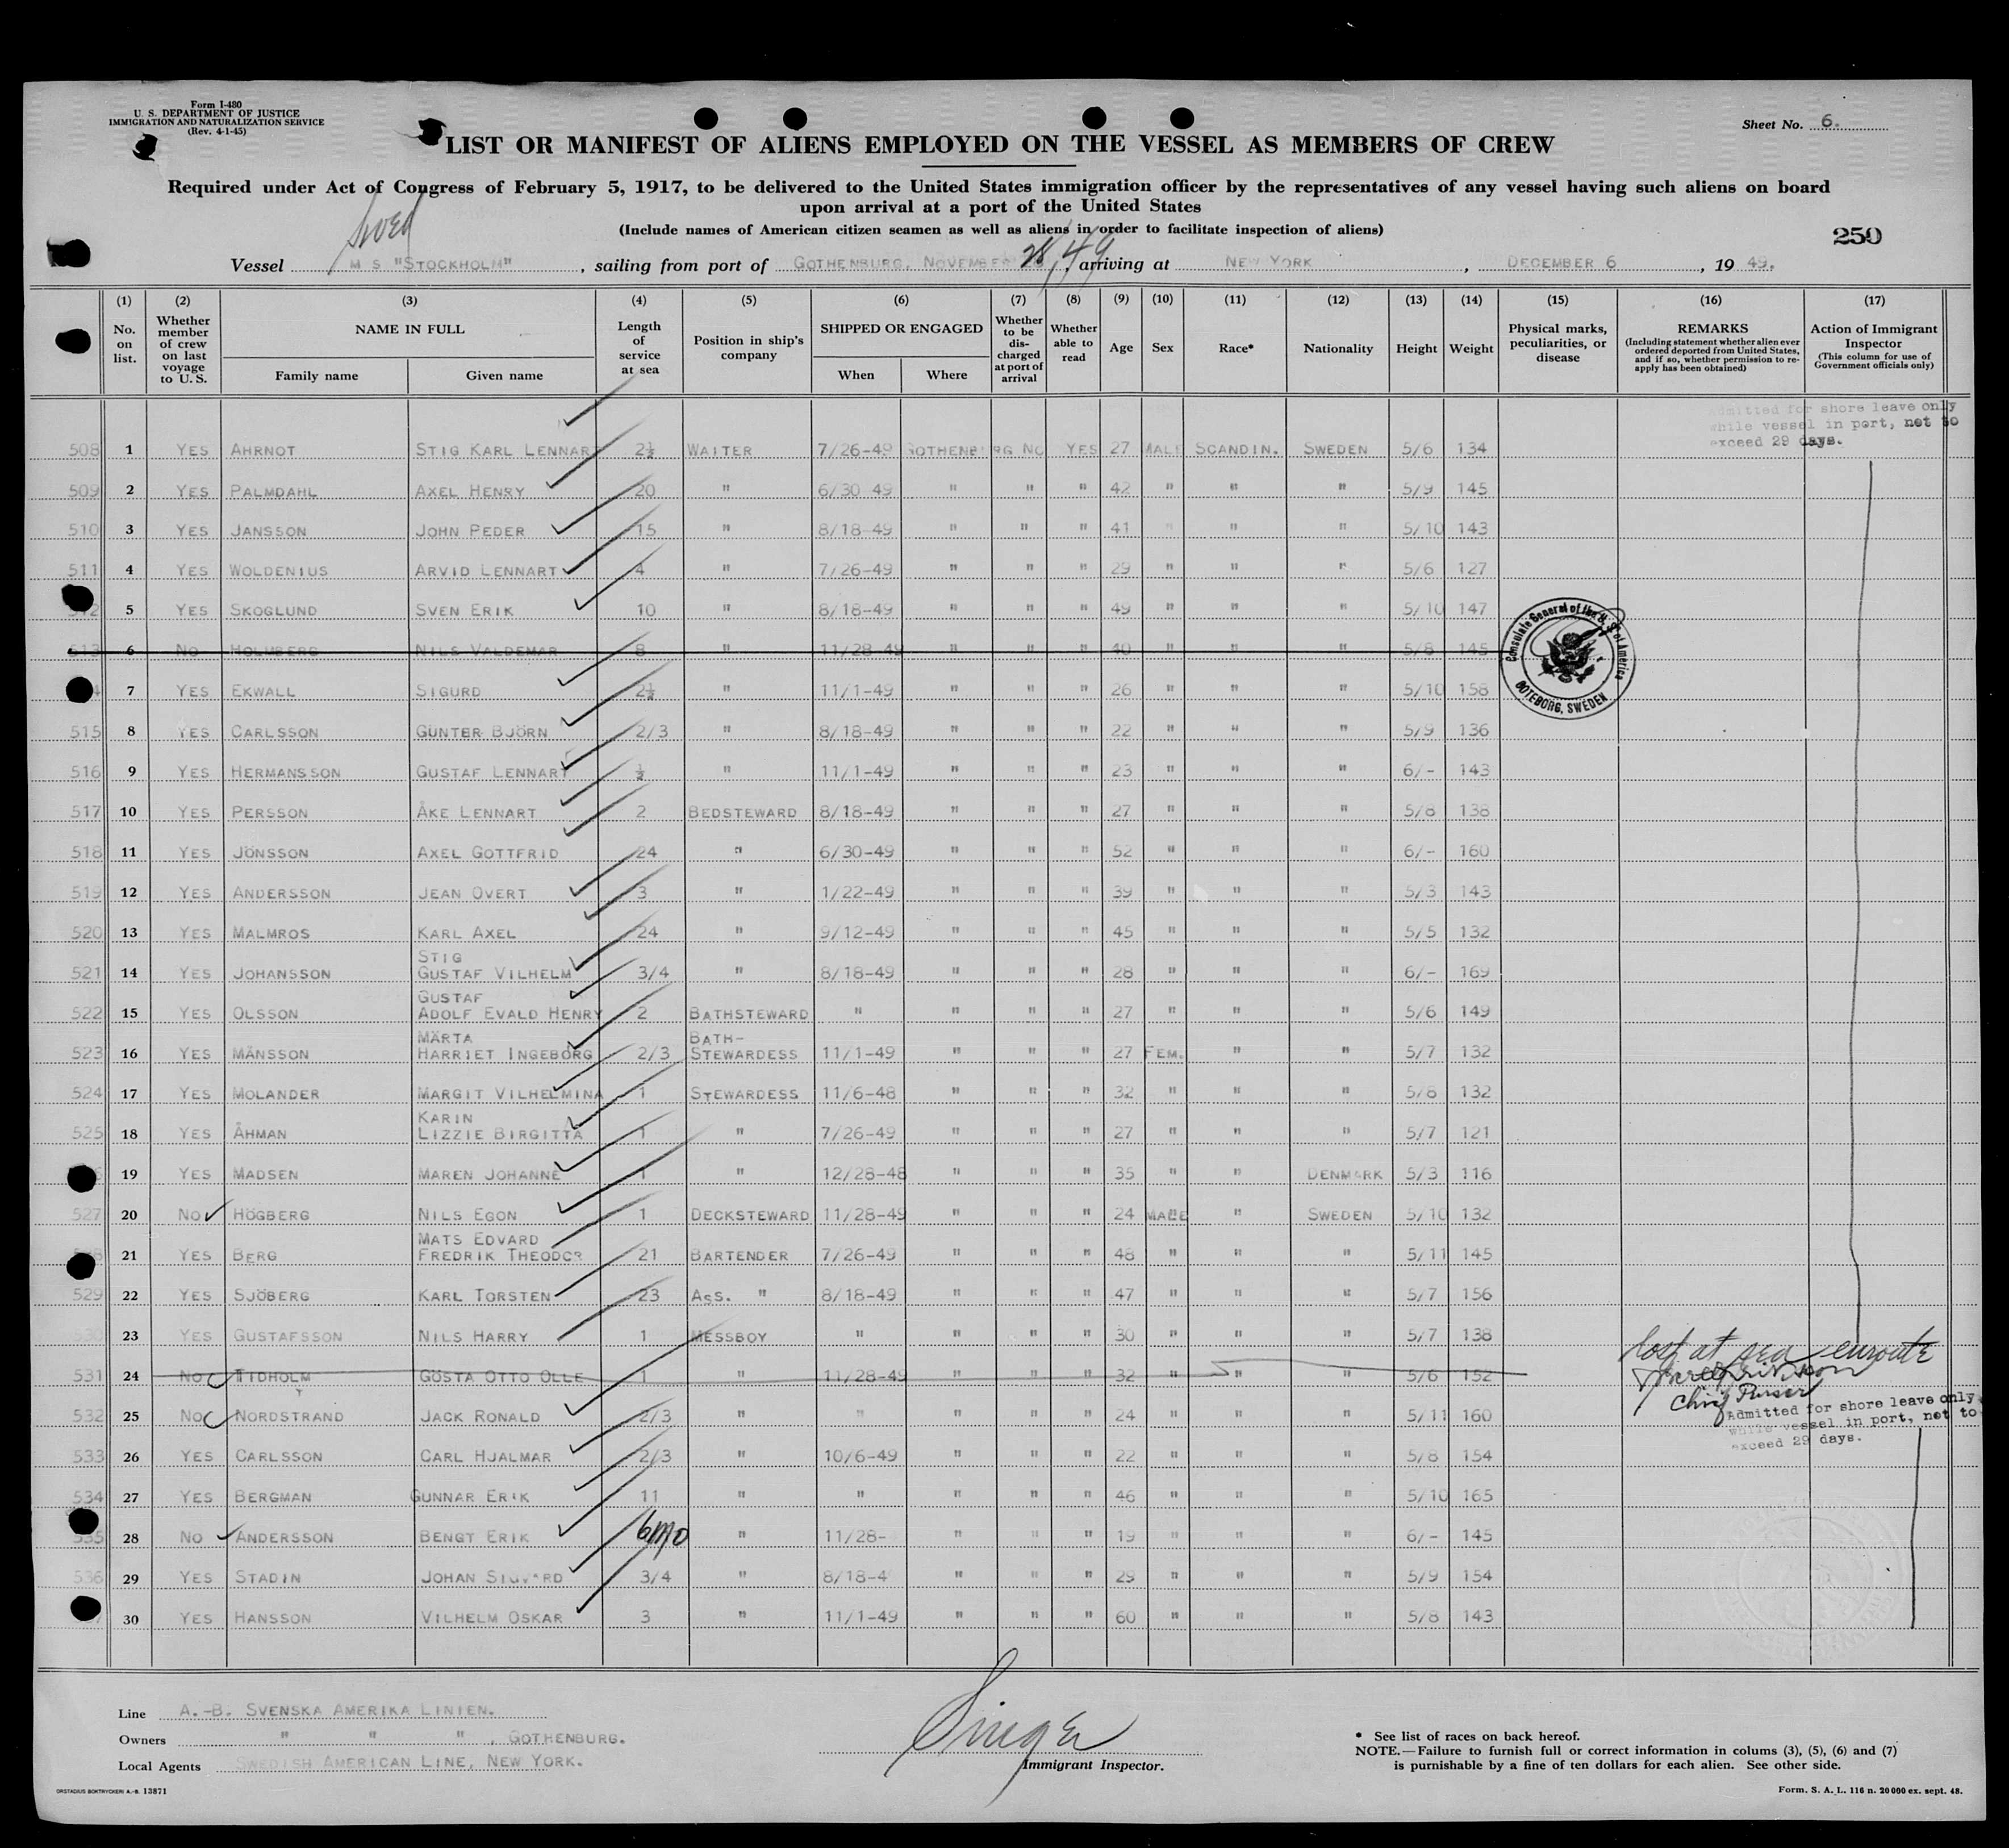 Form I-480
U. S. DEPARTMENT OF JUSTICE
IMMIGRATION AND NATURALIZATION SERVICE
(Rev. 4-1-45)
Sheet No. 6.
LIST OR MANIFEST OF ALIENS EMPLOYED ON THE VESSEL AS MEMBERS OF CREW
Required under Act of Congress of February 5, 1917, to be delivered to the United States immigration officer by the representatives of any vessel having such aliens on board
upon arrival at a port of the United States
(Include names of American citizen seamen as well as aliens in order to facilitate inspection of aliens)
250
Swed
Vessel M S "STOCKHOLM", sailing from port of GOTHENBURG, NOVEMBER 28, 49, arriving at NEW YORK, DECEMBER 6, 19 49.
(1) (2) (3) (4) (5) (6) (7) (8) (9) (10) (11) (12) (13) (14) (15) (16) (17)
No. on list.
Whether member of crew on last voyage to U. S.
NAME IN FULL
Family name
Given name
Length of service at sea
Position in ship's company
SHIPPED OR ENGAGED
When
Where
Whether to be discharged at port of arrival
Whether able to read
Age
Sex
Race*
Nationality
Height
Weight
Physical marks, peculiarities, or disease
REMARKS
(Including statement whether alien ever ordered deported from United States, and if so, whether permission to reapply has been obtained)
Action of Immigrant Inspector
(This column for use of Government officials only)
Admitted for shore leave only
while vessel in port, not to
exceed 29 days.
508 1 YES AHRNOT STIG KARL LENNAR 2½ WAITER 7/26-49 GOTHENBURG NO YES 27 MALE SCANDIN. SWEDEN 5/6 134
509 2 YES PALMDAHL AXEL HENRY 20 " 6/30 49 " " " 42 " " " 5/9 145
510 3 YES JANSSON JOHN PEDER 15 " 8/18-49 " " " 41 " " " 5/10 143
511 4 YES WOLDENIUS ARVID LENNART 4 " 7/26-49 " " " 29 " " " 5/6 127
5 YES SKOGLUND SVEN ERIK 10 " 8/18-49 " " " 49 " " " 5/10 147
513 6 NO HOLMBERG NILS VALDEMAR 8 " 11/28-49 " " " 40 " " " 5/8 145
Consulate General of the U. S. of America
GOTEBORG, SWEDEN
7 YES EKWALL SIGURD 2½ " 11/1-49 " " " 26 " " " 5/10 158
515 8 YES CARLSSON GUNTER BJÖRN 2/3 " 8/18-49 " " " 22 " " " 5/9 136
516 9 YES HERMANSSON GUSTAF LENNART ½ " 11/1-49 " " " 23 " " " 6/- 143
517 10 YES PERSSON ÅKE LENNART 2 BEDSTEWARD 8/18-49 " " " 27 " " " 5/8 138
518 11 YES JÖNSSON AXEL GOTTFRID 24 " 6/30-49 " " " 52 " " " 6/- 160
519 12 YES ANDERSSON JEAN OVERT 3 " 1/22-49 " " " 39 " " " 5/3 143
520 13 YES MALMROS KARL AXEL 24 " 9/12-49 " " " 45 " " " 5/5 132
521 14 YES JOHANSSON STIG GUSTAF VILHELM 3/4 " 8/18-49 " " " 28 " " " 6/- 169
522 15 YES OLSSON GUSTAF ADOLF EVALD HENRY 2 BATHSTEWARD " " " " 27 " " " 5/6 149
523 16 YES MÅNSSON MÄRTA HARRIET INGEBORG 2/3 BATH-STEWARDESS 11/1-49 " " " 27 FEM. " " 5/7 132
524 17 YES MOLANDER MARGIT VILHELMINA 1 STEWARDESS 11/6-48 " " " 32 " " " 5/8 132
525 18 YES ÅHMAN KARIN LIZZIE BIRGITTA 1 " 7/26-49 " " " 27 " " " 5/7 121
19 YES MADSEN MAREN JOHANNE 1 " 12/28-48 " " " 35 " " DENMARK 5/3 116
527 20 NO HÖGBERG NILS EGON 1 DECKSTEWARD 11/28-49 " " " 24 MALE " SWEDEN 5/10 132
21 YES BERG MATS EDVARD FREDRIK THEODOR 21 BARTENDER 7/26-49 " " " 48 " " " 5/11 145
529 22 YES SJÖBERG KARL TORSTEN 23 ASS. " 8/18-49 " " " 47 " " " 5/7 156
530 23 YES GUSTAFSSON NILS HARRY 1 MESSBOY " " " " 30 " " " 5/7 138
531 24 NO TIDHOLM GÖSTA OTTO OLLE 1 " 11/28-49 " " " 32 " " " 5/6 152 lost at sea enroute
Chief Purser
Admitted for shore leave only
while vessel in port, not to
exceed 29 days.
532 25 NO NORDSTRAND JACK RONALD 2/3 " " " " " 24 " " " 5/11 160
533 26 YES CARLSSON CARL HJALMAR 2/3 " 10/6-49 " " " 22 " " " 5/8 154
534 27 YES BERGMAN GUNNAR ERIK 11 " " " " " 46 " " " 5/10 165
535 28 NO ANDERSSON BENGT ERIK 6mo " 11/28- " " " 19 " " " 6/- 145
536 29 YES STADIN JOHAN SIGVARD 3/4 " 8/18-4 " " " 29 " " " 5/9 154
30 YES HANSSON VILHELM OSKAR 3 " 11/1-49 " " " 60 " " " 5/8 143
Line A.-B. SVENSKA AMERIKA LINIEN.
Owners " " ", GOTHENBURG.
Local Agents SWEDISH AMERICAN LINE, NEW YORK.
Singer
Immigrant Inspector.
* See list of races on back hereof.
NOTE.—Failure to furnish full or correct information in colums (3), (5), (6) and (7)
is purnishable by a fine of ten dollars for each alien. See other side.
ORSTADIUS BOKTRYCKERI A.-B. 13871
Form. S. A. L. 116 n. 20000 ex. sept. 48.